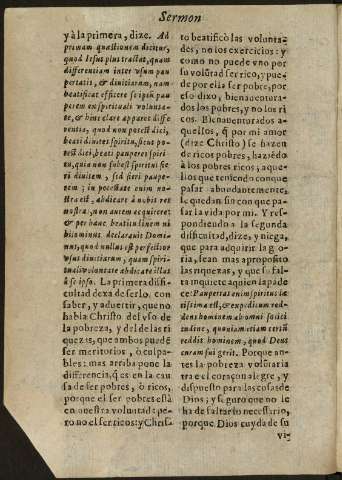 Sermon
y à la primera, dize. Ad
primam quæstionem dicitur,
quod Iesus plus tractat, quam
differentiam inter vsum pau
pertatis, & diuitiarum, nam
beatificat efficere se ipsū pau
perem ex spirituali volunta-
te, & hinc clare apparet diffe
rentia, quod non potest dici,
beati diuites spiritu, sicut po-
test dici, beati pauperes spiri-
tu, quia non subest spiritui fie
ri diuitem, sed fieri paupe-
rem; in potestate enim no-
stra est, abdicare à nobis res
nostras, non autem acquirere;
& per hanc beatitudinem ni
hilominus declarauit Domi-
nus, quod nullus est perfectior
vsus diuitiarum, quam spiri-
tuali voluntate abdicare illas
à se ipso. La primera difi-
cultad dexa de serlo, con
saber, y aduertir, que no
habla Christo del vso de
la pobreza, y del de las ri
quezas, que ambos puedē
ser meritorios, ò culpa-
bles: mas arriba pone la
diferencia, q̃ es en la cau
sa de ser pobres, ò ricos,
porque el ser pobres està
en nuestra voluntad: pe-
ro no el ser ricos: y Christ
to beatificò las volunta-
des, no los exercicios: y
como no puede vno por
su volūtad ser rico, y pue-
de por ella ser pobre, por
eso dixo, bienauentura-
dos los pobres, y no los ri
cos. Bienauenturados a-
quellos, q̃ por mi amor
(dize Christo) se hazen
de ricos pobres, haziēdo
à los pobres ricos; aque-
llos que teniendo con que
pasar abundantemente,
se quedan sin con que pa-
sar la vida por mi. Y res-
pondiendo a la segunda
dificultad, dize, y niega,
que para adquirir la glo-
ria, sean mas a proposito
las riquezas, y que su fal-
ta inquiete aquien la pade
ce: Paupertas enim spiritus la
tissima est, & expedit um red-
dens hominem ab omni solici
tudine, quoniam etiam certū
reddit hominem, quod Deus
curam sui gerit. Porque an-
tes la pobreza voluntaria
trae el coraçon alegre, y
dispuesto para las cosas de
Dios; y seguro que no le
ha de faltar lo necesario,
porque Dios cuyda de su